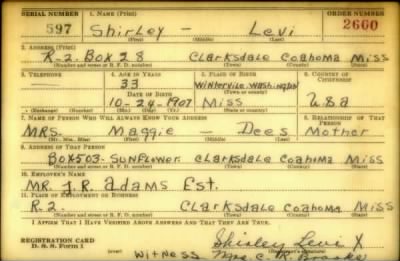 SERIAL NUMBER 1. NAME (Print) ORDER NUMBER
597 Shirley - Levi 2660
(First) (Middle) (Last)
2. ADDRESS (Print)
R-2. Box 28 Clarksdale Coahoma Miss
(Number and street or R. F. D. number) (Town) (County) (State)
3. TELEPHONE 4. AGE IN YEARS 5. PLACE OF BIRTH 6. COUNTRY OF CITIZENSHIP
— 33 Winterville, Washington
DATE OF BIRTH (Town or county)
10-24-1907 Miss U.S.A
(Exchange) (Number) (Mo.) (Day) (Yr.) (State or country)
7. NAME OF PERSON WHO WILL ALWAYS KNOW YOUR ADDRESS 8. RELATIONSHIP OF THAT PERSON
MRS. Maggie - Dees Mother
(Mr., Mrs., Miss) (First) (Middle) (Last)
9. ADDRESS OF THAT PERSON
Box 503- Sunflower. Clarksdale Coahoma Miss
(Number and street or R. F. D. number) (Town) (County) (State)
10. EMPLOYER'S NAME
MR. J.R. Adams Est.
11. PLACE OF EMPLOYMENT OR BUSINESS
R.2. Clarksdale Coahoma Miss
(Number and street or R. F. D. number) (Town) (County) (State)
I AFFIRM THAT I HAVE VERIFIED ABOVE ANSWERS AND THAT THEY ARE TRUE.
REGISTRATION CARD
D. S. S. FORM 1
Shirley Levi X
Witness Mrs. C. K.